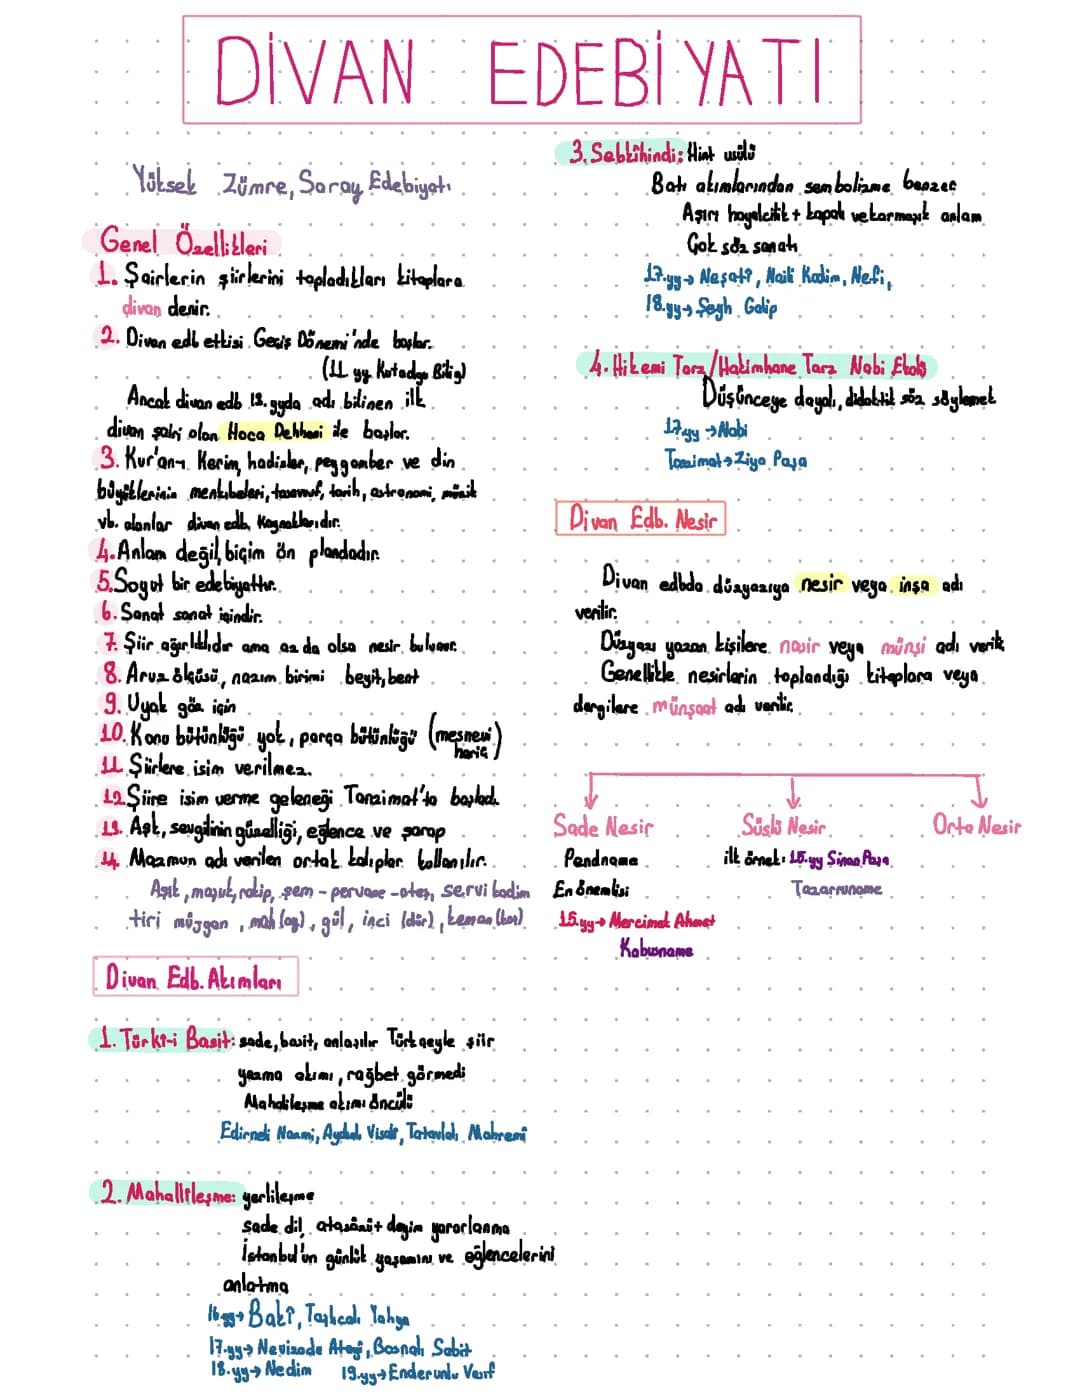 DİVAN EDEBİYATI
Yüksek Zümre, Saray Edebiyatı
Genel Özellikleri
1. Şairlerin şiirlerini topladıkları kitaplara
divan denir.
2. Divan edb etkisi Geçiş Dönemi'nde başlar.
(11 yy Kutadgu Bilig)
Ancak divan edb 13. yyda adı bilinen ilk
divan şairi olan Hoca Dehhani ile başlar.
3. Kur'an-ı Kerim, hadisler, peygamber ve din
büyüklerinin menkıbeleri, tasavvuf, tarih, astronomi, müzik
vb. alanlar divan edb. kaynaklarıdır.
4. Anlam değil, biçim ön plandadır.
5. Soyut bir edebiyattır.
6. Sanat sanat içindir.
7. Şiir ağırlıklıdır ama az da olsa nesir bulunur.
8. Aruz ölçüsü, nazım birimi beyit, bent
9. Uyak göz için
10. Konu bütünlüğü yok, parça bütünlüğü (mesnevi
hariç)
11. Şiirlere isim verilmez.
12. Şiire isim verme geleneği Tanzimat'ta başladı.
13. Aşk, sevgilinin güzelliği, eğlence ve şarap
14. Mazmun adı verilen ortak kalıplar kullanılır.
Aşık, maşuk, rakip, şem-pervane-ateş, servi kadim
tiri müjgan, mah (ay), gül, inci (dür), keman (kaş)
Divan Edb. Akımları
1. Türki-i Basit: sade, basit, anlaşılır Türkçeyle şiir
yazma akımı, rağbet görmedi
Mahallileşme akımı öncülü
Edirneli Nazmi, Aydınlı Visali, Tatavlalı Mahremi
2. Mahallileşme: yerlileşme
sade dil, atasözü+ deyim yararlanma
İstanbul'un günlük yaşamını ve eğlencelerini
anlatma
16.yy→ Baki, Taşlıcalı Yahya
17.yy→ Nevizade Atayi, Bosnalı Sabit
18.yy→ Nedim 19.yy→ Enderunlu Vasıf
3. Sebkihindi: Hint usülü
Batı akımlarından sembolizme benzer
Aşırı hayalcilik + kapalı ve karmaşık anlam
Çok söz sanatı
17.yy→ Neşati, Naili Kadim, Nefi,
18.yy→ Şeyh Galip
4. Hikemi Tarz/Hakimhane Tarz Nabi Ekolü
Düşünceye dayalı, didaktik söz söylemek
17.yy →Nabi
Tanzimat→ Ziya Paşa
Divan Edb. Nesir
Divan edbda düzyazıya nesir veya inşa adı
verilir.
Düzyazı yazan kişilere nasir veya münşi adı verilir
Genellikle nesirlerin toplandığı kitaplara veya
dergilere münşaat adı verilir.
Sade Nesir Süslü Nesir Orta Nesir
Pendname ilk örnek: 15.yy Sinan Paşa
En önemlisi Tazarruname
15.yy→ Mercimek Ahmet
Kabusname